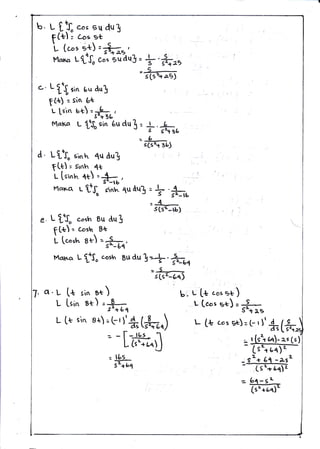 b. L {∫₀ᵗ cos 5u du}
F(t) = cos 5t
L (cos 5t) = s/(s²+25),
Maka L{∫₀ᵗ cos 5u du} = 1/s · s/(s²+25)
= s/(s(s²+25))
c. L {∫₀ᵗ sin 6u du}
F(t) = sin 6t
L (sin 6t) = 6/(s²+36),
Maka L {∫₀ᵗ sin 6u du} = 1/s · 6/(s²+36)
= 6/(s(s²+36))
d. L {∫₀ᵗ sinh 4u du}
F(t) = sinh 4t
L (sinh 4t) = 4/(s²-16),
Maka L {∫₀ᵗ sinh 4u du} = 1/s · 4/(s²-16)
= 4/(s(s²-16))
e. L {∫₀ᵗ cosh 8u du}
F(t) = cosh 8t
L (cosh 8t) = s/(s²-64),
Maka L {∫₀ᵗ cosh 8u du} = 1/s · s/(s²-64)
= s/(s(s²-64))
7. a. L (t sin 8t)
L (sin 8t) = 8/(s²+64)
L (t sin 8t) = (-1)¹ d/ds (8/(s²+64))
= - [-16s/(s²+64)²]
= 16s/(s²+64)
b. L (t cos 5t)
L (cos 5t) = s/(s²+25)
L (t cos 5t) = (-1)¹ d/ds (s/(s²+25))
= 1(s²+64)-2s(s)/(s²+64)²
= s²+64-2s²/(s²+64)²
= 64-s²/(s²+64)²